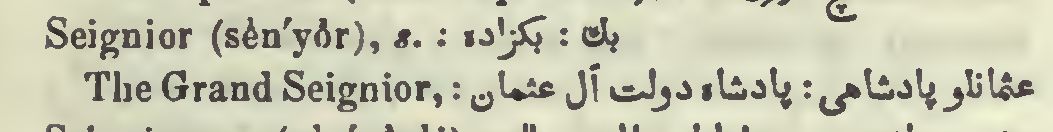 Seignior (sên′yòr), s. : بك : بكزاده
The Grand Seignior, : عثمانلو پادشاهى : پادشاه دولت آل عثمان